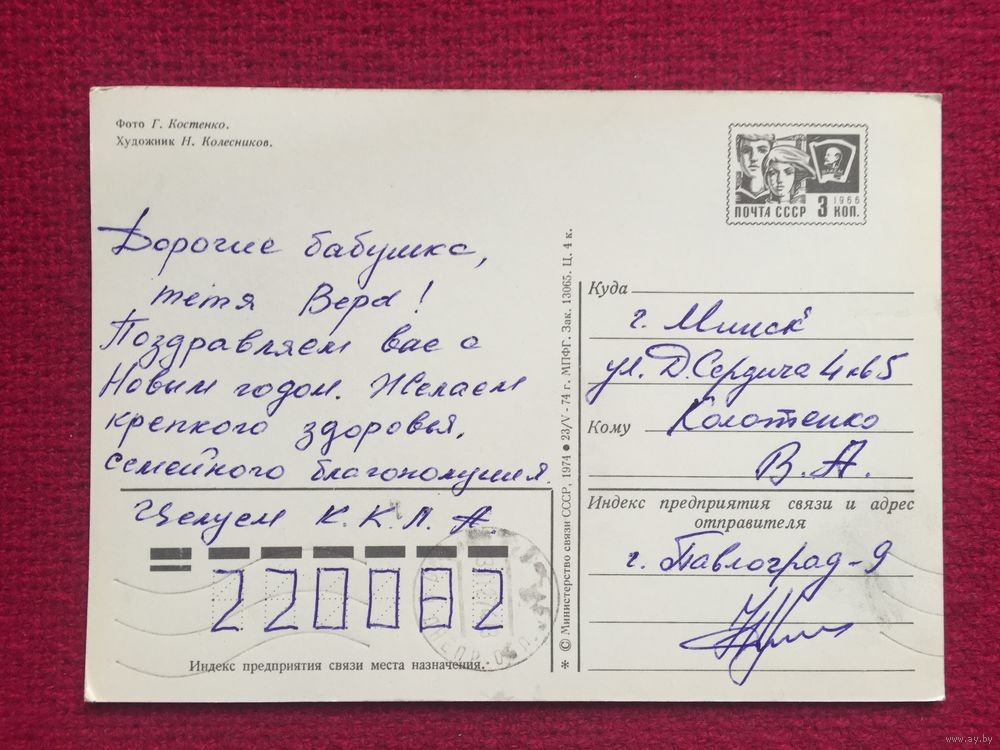 Фото Г. Костенко.
Художник Н. Колесников.
ПОЧТА СССР 3 КОП.
1966
Дорогие бабушка,
тетя Вера!
Поздравляем вас с
Новым годом. Желаем
крепкого здоровья,
семейного благополучия.
Целуем К. К. Л. А.
220082
Индекс предприятия связи места назначения.
* © Министерство связи СССР, 1974 ● 23/V-74 г. МПФГ. Зак. 13065. Ц. 4 к.
Куда
г. Минск
ул. Д. Сердича 4 кв 5
Кому Колотенко
В. А.
Индекс предприятия связи и адрес
отправителя
г. Павлоград-9
www.ay.by